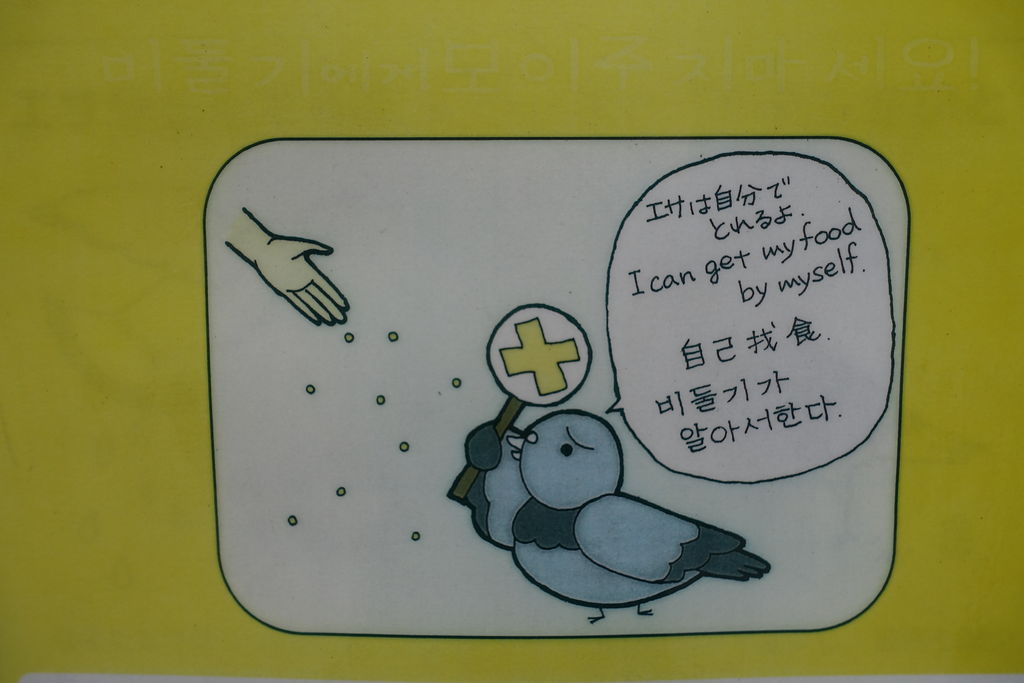 비둘기에게 모이 주지마세요!
エサは自分で
とれるよ.
I can get my food
by myself.
自己找食.
비둘기가
알아서한다.